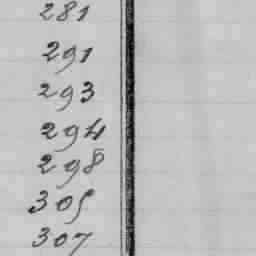 281
291
293
294
298
305
307